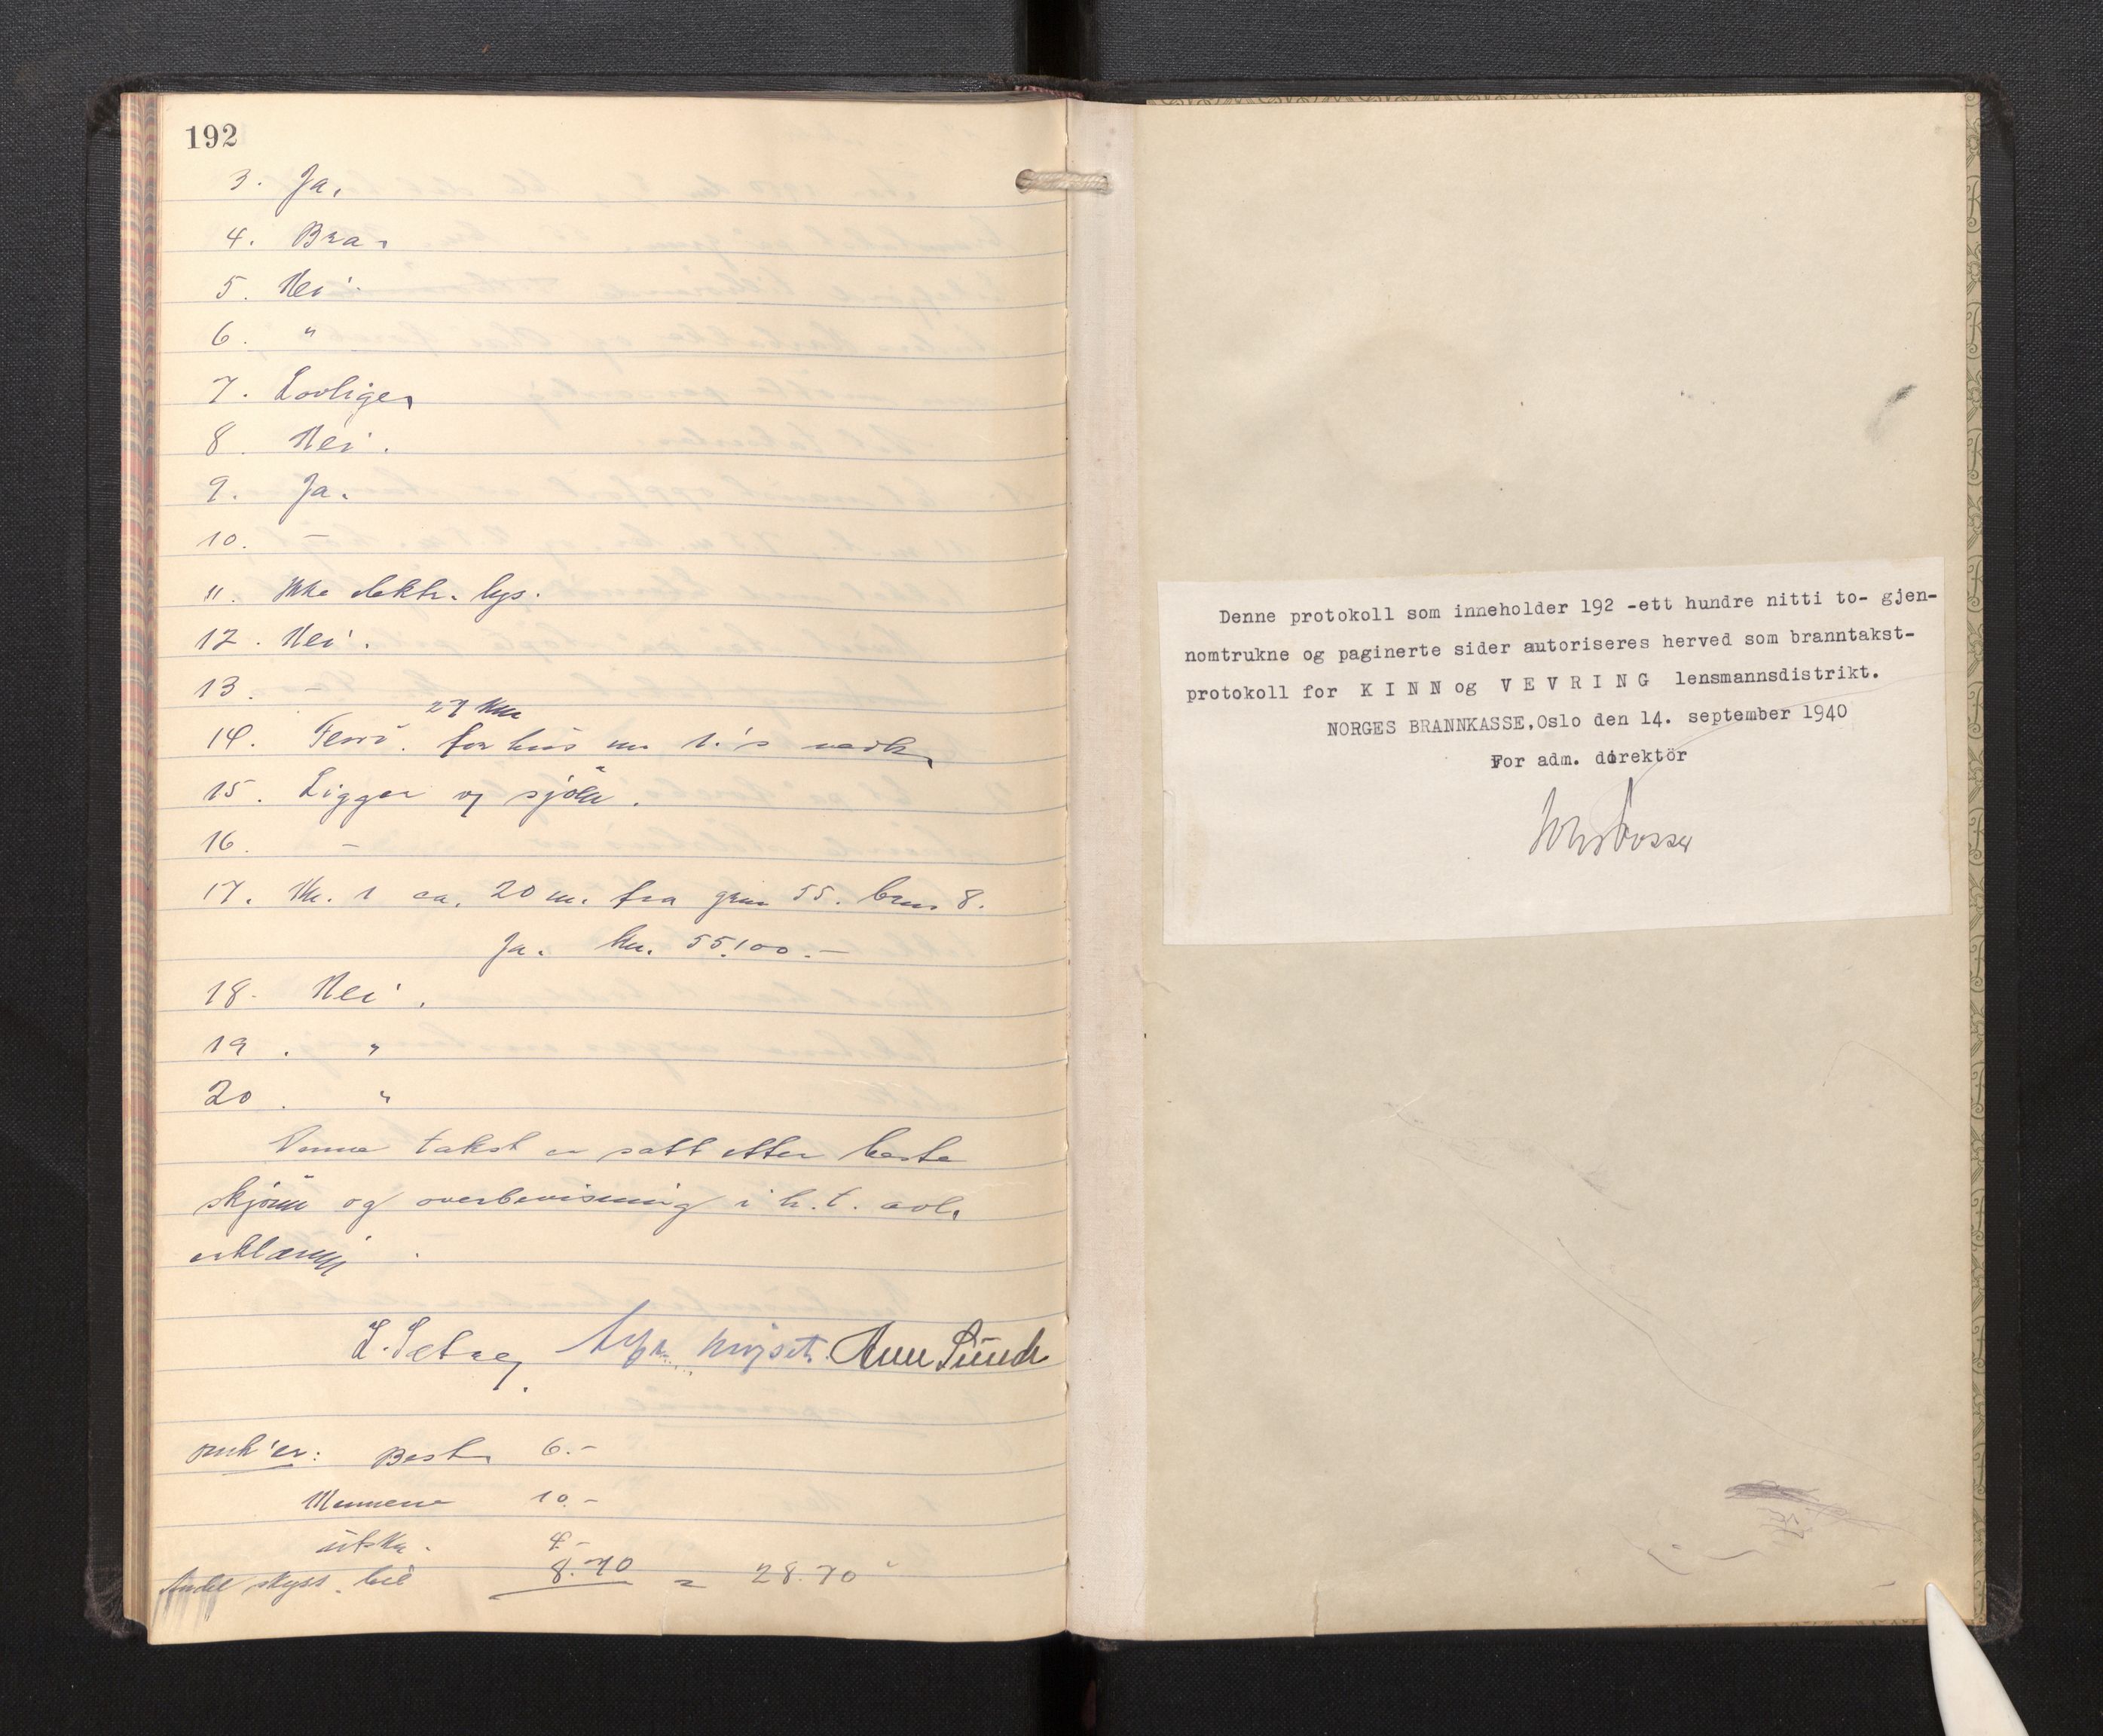 192
3. Ja.
4. Bra.
5. Nei.
6. "
7. Lovlige.
8. Nei.
9. Ja.
10. —
11. Ikke elektr. lys.
12. Nei.
13. —
27 km
14. for hus nr. 1.'s vedk.
15. Ligger v/ sjøen.
16. —
17. Nr. 1 ca. 20 m. fra gnr 55. bnr 8.
Ja. kr. 55.100.—
18. Nei.
19. "
20. "
Denne takst er satt etter beste
skjønn og overbevisning i h.t. avl.
erklæring.
L. Sætre
omk'er: Best. 6.-
Mennene 10.-
utskr. 4.-
Andel skyss. bil 8.70 = 28.70
Denne protokoll som inneholder 192 -ett hundre nitti to- gjen-
nomtrukne og paginerte sider autoriseres herved som branntakst-
protokoll for K I N N og V E V R I N G lensmannsdistrikt.
NORGES BRANNKASSE,Oslo den 14. september 1940
For adm. direktör